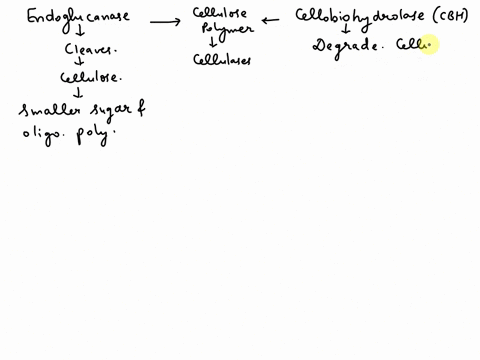 Endoglucanase → Cellulose Polymer ← Cellobiohydrolase (CBH)
↓
Cleaves.
↓
Cellulose.
↓
Smaller sugar &
oligo. poly.
↓
Cellulases
↓
Degrade. Cell